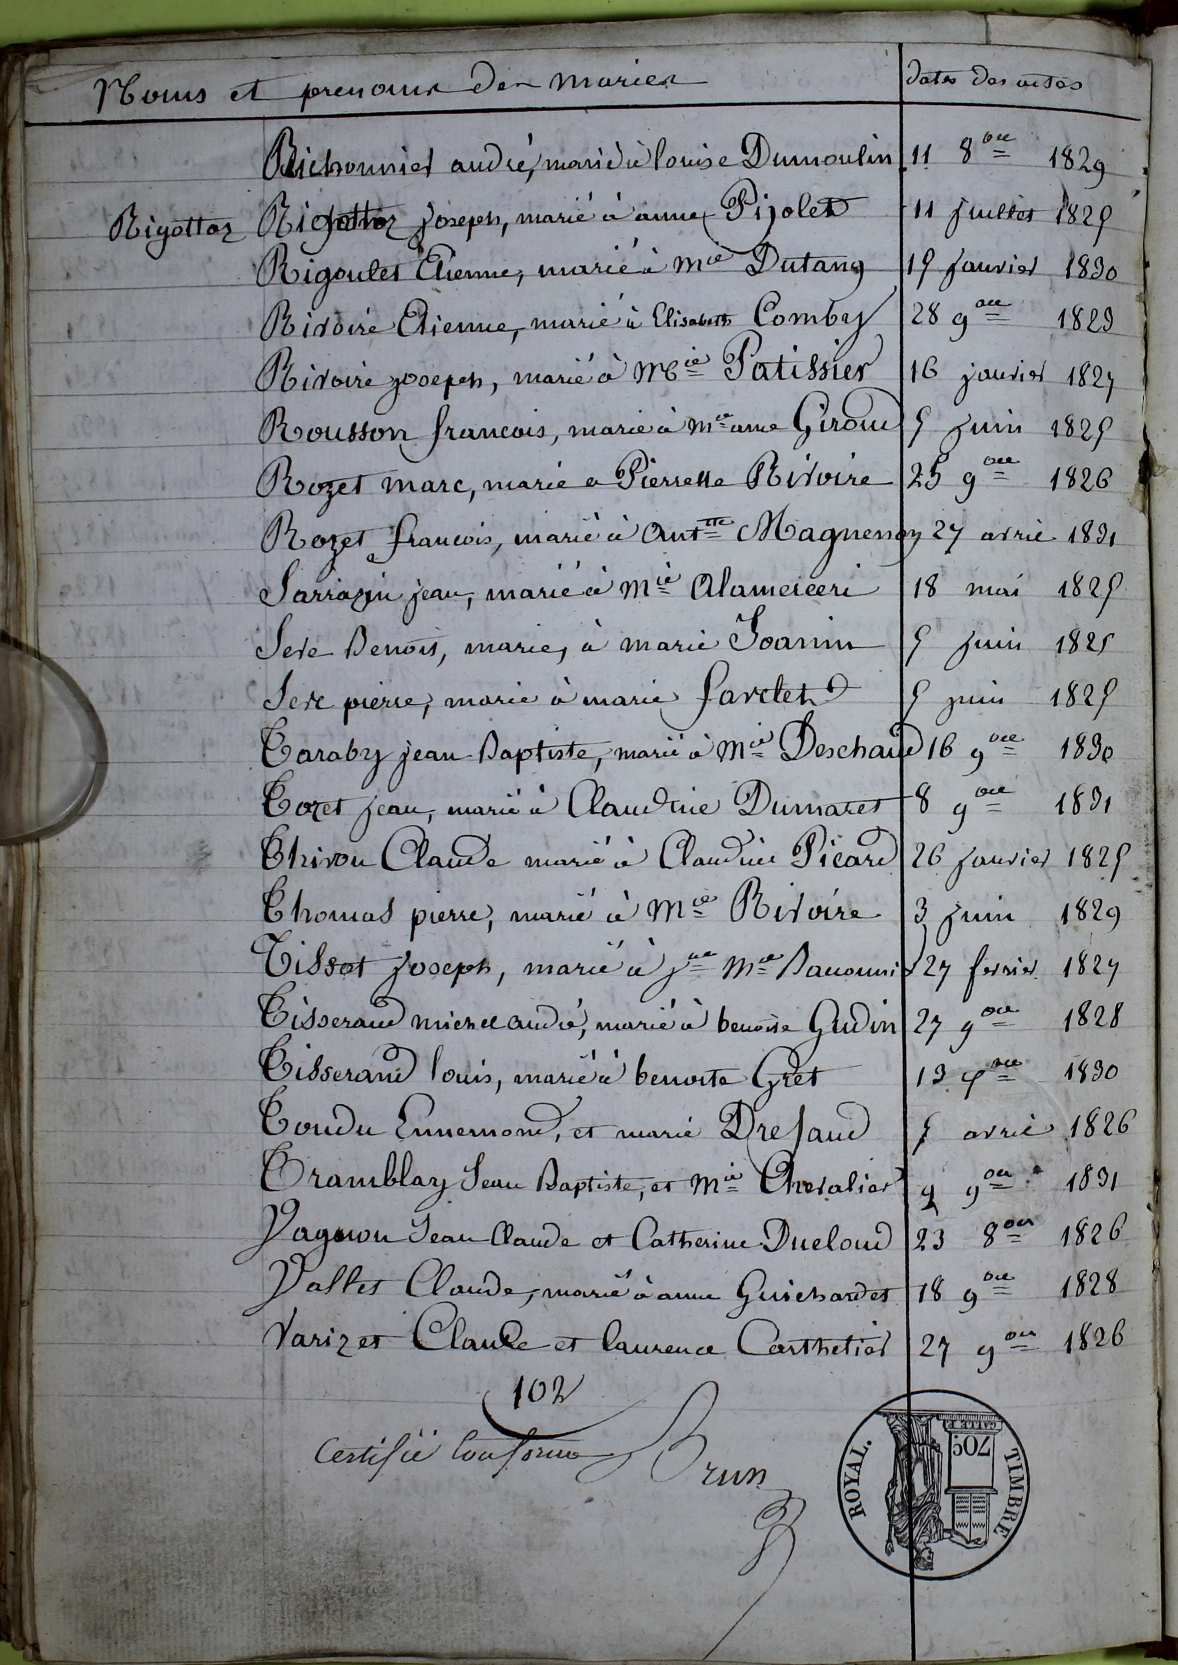 Noms et prenoms des mariés dates des actes
Richonnier andré, marié à louise Dumoulin 11 8bre 1829
Rigottaz Rigottaz joseph, marié à anne Pizolet 11 juillet 1825
Rigoulet Etienne, marié à Mie Dutang 15 janvier 1830
Rivoire Etienne, marié à Elisabeth Comby 28 9bre 1829
Rivoire joseph, marié à Mie Patissier 16 janvier 1827
Rousson francois, marié à Mie anne Giroud 5 juin 1825
Rozet marc, marié a Pierrette Rivoire 25 9bre 1826
Rozet francois, marié à Anttte Magnenoz 27 avril 1831
Sarrazin jean, marié à Mie 18 mai 1825
Seve Benoit, marié, à marie Joanin 5 juin 1825
Seve pierre, marié à marie Farctet 5 juin 1825
Taraby jean Baptiste, marié à Mie Deschaud 16 9bre 1830
Tozet jean, marié à Claudine Dumaret 8 9bre 1831
Thivon Claude marié à Claudine Picard 26 janvier 1825
Thomas pierre, marié à Mie Rivoire 3 juin 1829
Tissot joseph, marié à jne Mie Baconnier 27 fevrier 1827
Tisserand michel andré, marié à benoite Gudin 27 9bre 1828
Tisserand louis, marié à benoite Gret 13 1830
Toudu Ennemond, et marie Drefaud 5 avril 1826
Tramblay Jean Baptiste, et Mie Chevalier 9 9bre 1831
Vagnon Jean Claude et Catherine Ducloud 23 8bre 1826
Vallet Claude, marié à anne Guichardet 18 9bre 1828
Varizet Claude et laurence Carthelier 27 9bre 1826
102
Certifié Conforme Brun
TIMBRE ROYAL.
70c